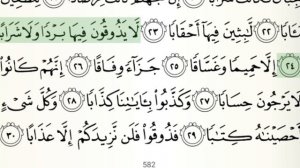 ـَٔابًا ٢٢ لَّٰبِثِينَ فِيهَآ أَحْقَابًا ٢٣ لَّا يَذُوقُونَ فِيهَا بَرْدًا وَلَا شَرَابًا
٢٤ إِلَّا حَمِيمًا وَغَسَّاقًا ٢٥ جَزَآءً وِفَاقًا ٢٦ إِنَّهُمْ كَانُوا۟
لَا يَرْجُونَ حِسَابًا ٢٧ وَكَذَّبُوا۟ بِـَٔايَٰتِنَا كِذَّابًا ٢٨ وَكُلَّ شَىْءٍ
أَحْصَيْنَٰهُ كِتَٰبًا ٢٩ فَذُوقُوا۟ فَلَن نَّزِيدَكُمْ إِلَّا عَذَابًا ٣٠
582